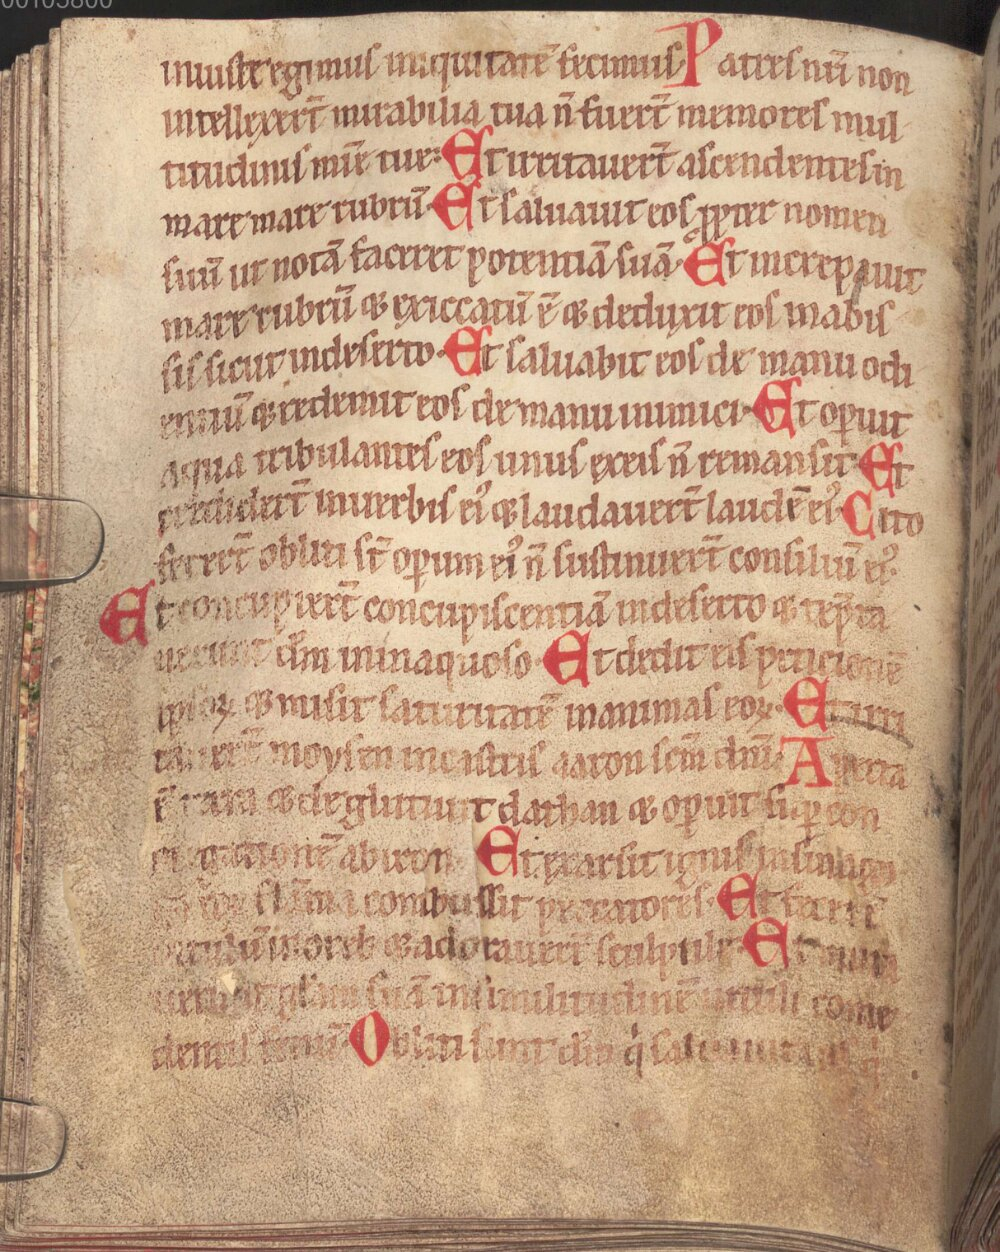 00105800
iniuste egimus iniquitatē fecimus Patres nr̄i non
intellexer̄t mirabilia tua n̄ fuer̄t memores mul
titudinis mīe tue: Et irritauer̄t ascendentes in
mare mare rubrū Et saluauit eos ꝓpter nomen
suū ut notā faceret potentiā suā Et increpauit
mare rubrū & exiccatū ē & deduxit eos in abis
sis sicut in deserto Et saluabit eos de manu odi
entiū & redemit eos de manu inimici Et operuit
aqua tribulantes eos unus ex eis n̄ remansit Et
credider̄t in uerbis eiꝰ & laudauer̄t laudē eiꝰ Cito
fecer̄t obliti st̄ operum eiꝰ n̄ sustinuer̄t consiliū eiꝰ
Et concupier̄t concupiscentiā in deserto & tēpta
uerunt dm̄ in inaquoso Et dedit eis peticionē
ipsoꝝ & misit saturitatē in animas eoꝝ Et irri
tauer̄t moysen in castris aaron scm̄ dn̄i Aperta
ē terra & deglutiuit dathan & operuit sup con
gregationē abiron Et exarsit ignis in sinago
eoꝝ flāma combussit peccatores Et fecer̄t
uitulū in oreb & adorauer̄t sculptile Et muta
uerunt glām suā in similitudinē uituli come
dentis fenū Obliti sunt dm̄ q̇ saluauit